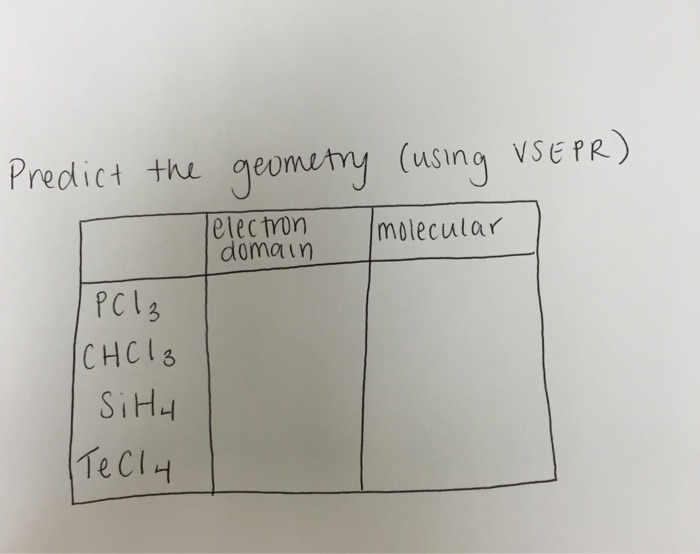 Predict the geometry (using VSEPR)
electron domain
molecular
PCl3
CHCl3
SiH4
TeCl4